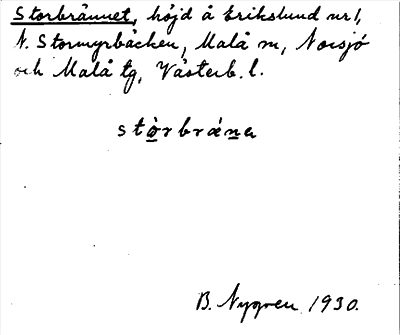 Storbrännet, höjd å Erikslund nr 1,
N. Stormyrbäcken, Malå sn, Norsjö
och Malå tg, Västerb. l.
stò̲rbrän̲a
B. Nygren 1930.